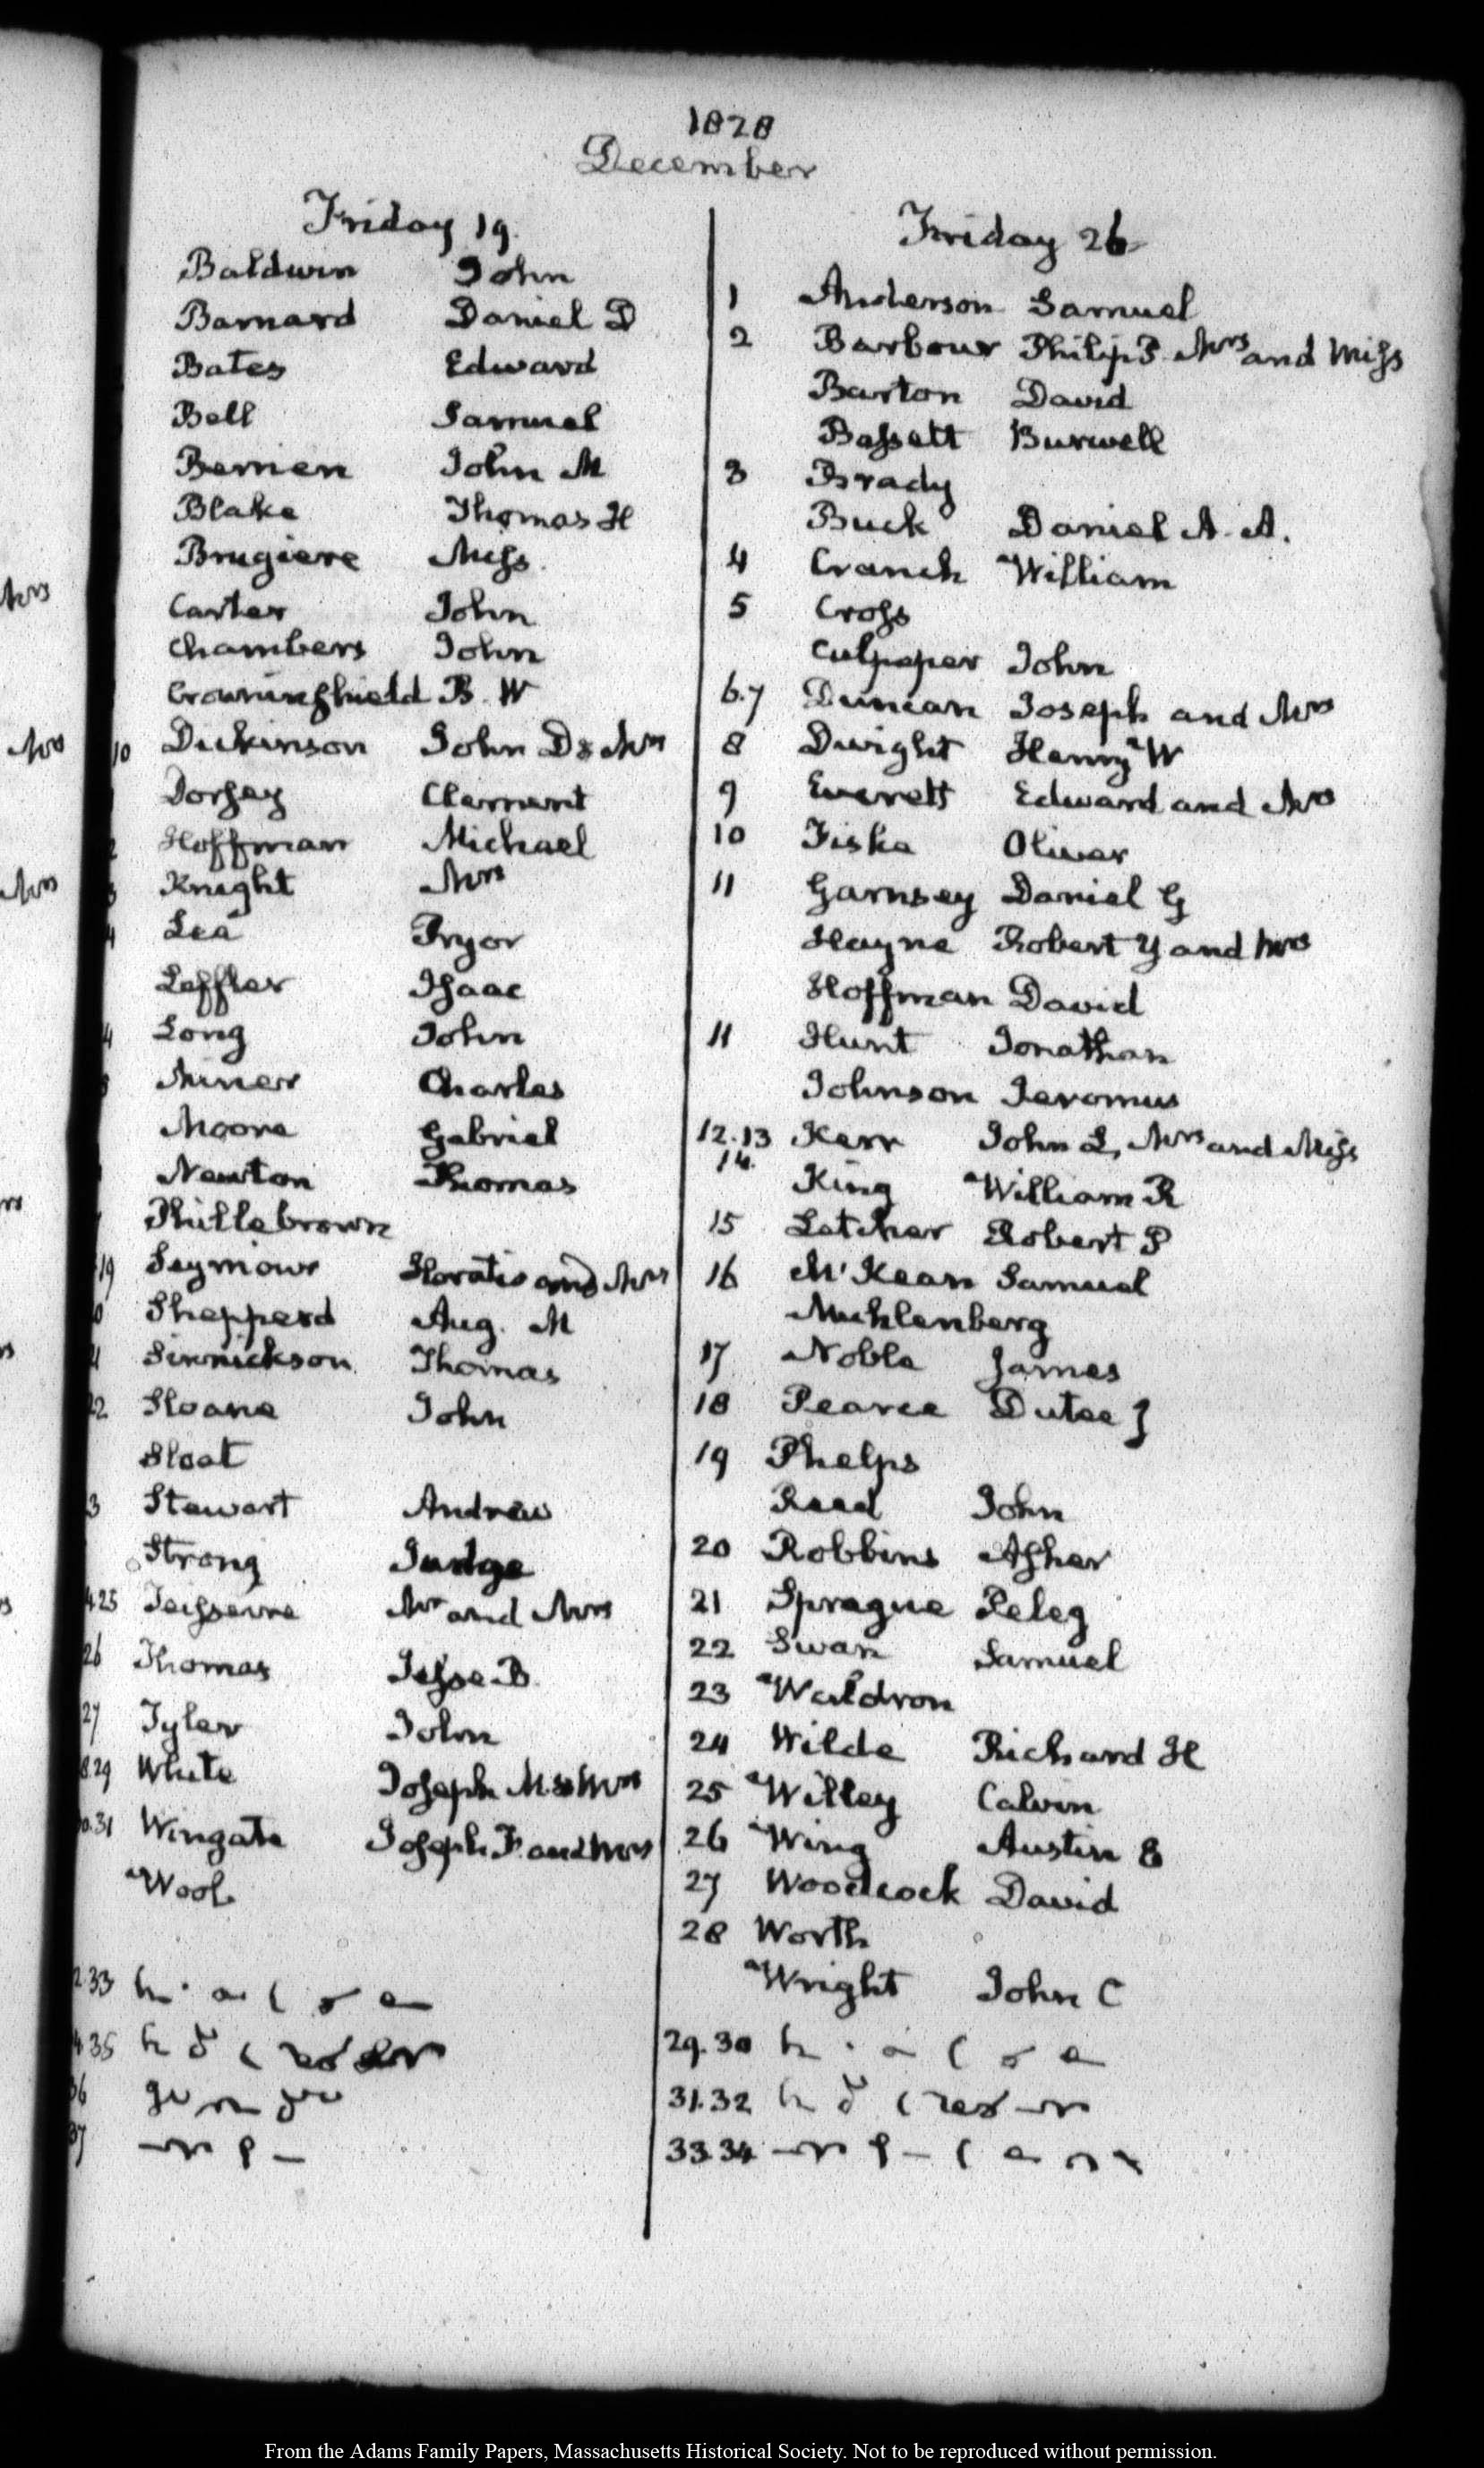 1828
December
Friday 19.
Baldwin John
Barnard Daniel D
Bates Edward
Bell Samuel
Bernen John M
Blake Thomas H
Brugiere Miss
Carter John
Chambers John
Crowninshield B. W
10 Dickinson John D & Mrs
Dorsey Clement
Hoffman Michael
Knight Mrs
Lea Pryor
Leffler Isaac
Long John
Miner Charles
Moore Gabriel
Newton Thomas
Phillebrown
19 Seymour Horatio and Mrs
Shepperd Aug. M
Sinnickson Thomas
22 Sloane John
Sloat
3 Stewart Andrew
Strong Judge
25 Mr and Mrs
26 Thomas Jesse B.
27 Tyler John
29 White Joseph M. & Mrs
31 Wingate Joseph F. and Mrs
Wool
33
35
36
37
Friday 26
1 Anderson Samuel
2 Barbour Philip P. Mrs and Miss
Barton David
Bassett Burwell
3 Brady
Buck Daniel A. A.
4 Cranch William
5 Cross
Culpeper John
6.7 Duncan Joseph and Mrs
8 Dwight Henry W
9 Everett Edward and Mrs
10 Fiske Oliver
11 Garnsey Daniel G
Hayne Robert Y and Mrs
Hoffman David
11 Hunt Jonathan
Johnson Jeromus
12.13 Kerr John L, Mrs and Miss
14.
King William R
15 Letcher Robert P
16 McKean Samuel
Muhlenberg
17 Noble James
18 Pearce Dutee J
19 Phelps
Reed John
20 Robbins Asher
21 Sprague Peleg
22 Swan Samuel
23 Waldron
24 Wilde Richard H
25 Willey Calvin
26 Wing Austin E
27 Woodcock David
28 Worth
Wright John C
29.30
31.32
33.34
From the Adams Family Papers, Massachusetts Historical Society. Not to be reproduced without permission.